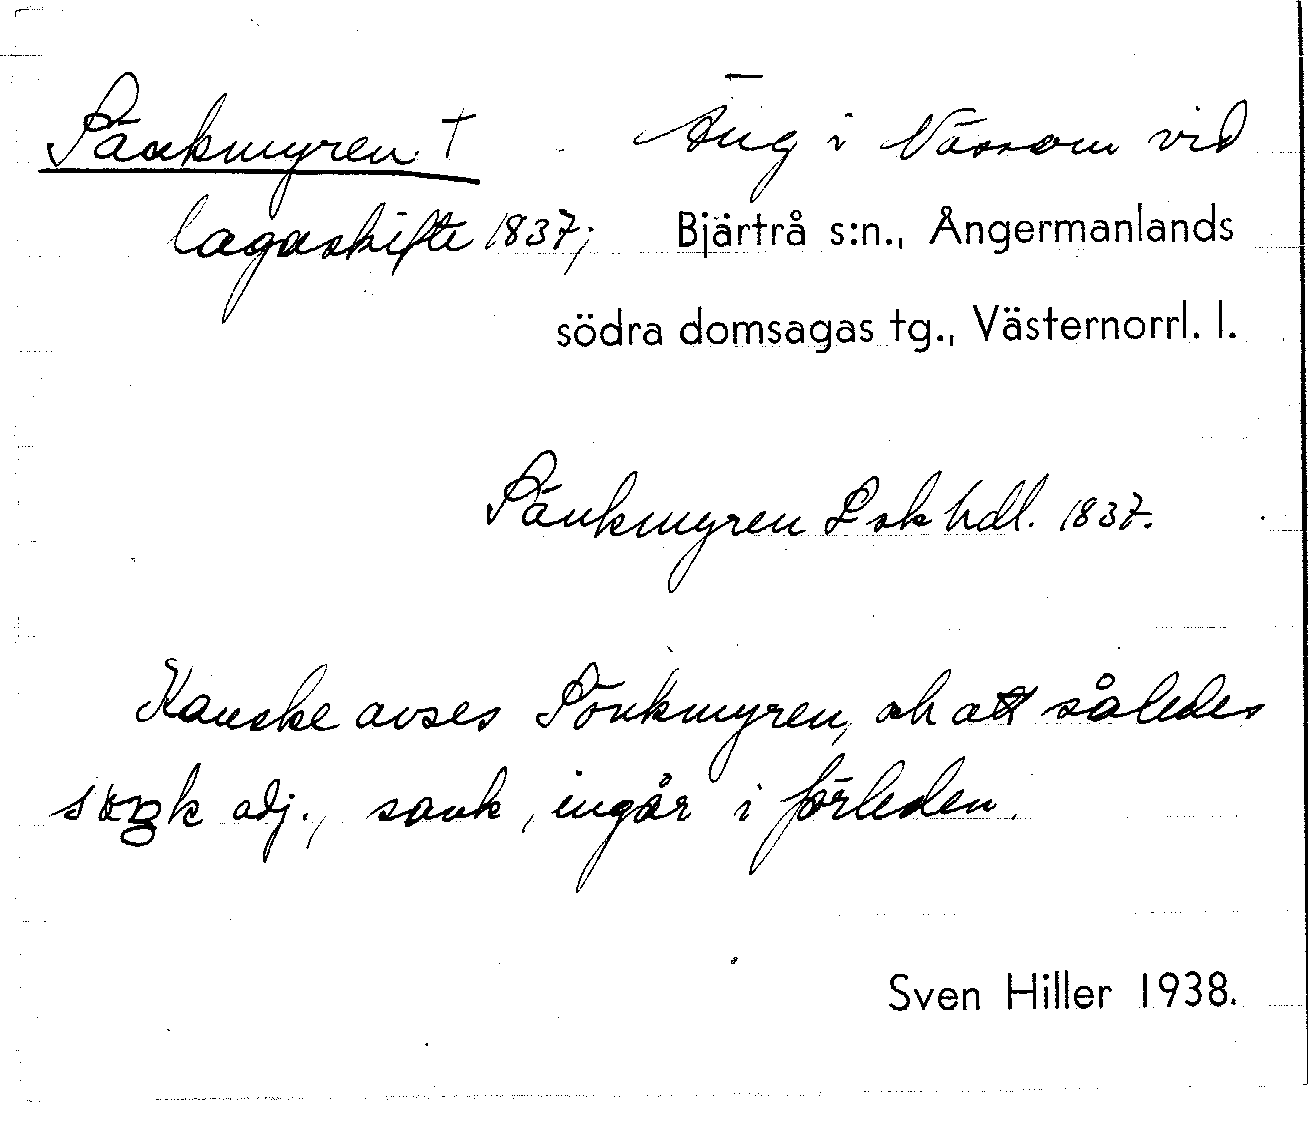 Sänkmyren † Äng i Nässom vid
lagaskifte 1837; Bjärtrå s:n., Ångermanlands
södra domsagas tg., Västernorrl. l.
Sänkmyren Lsk hdl. 1837.
Kanske avses Sönkmyren, och att således
söŋk adj., sank, ingår i förleden.
Sven Hiller 1938.